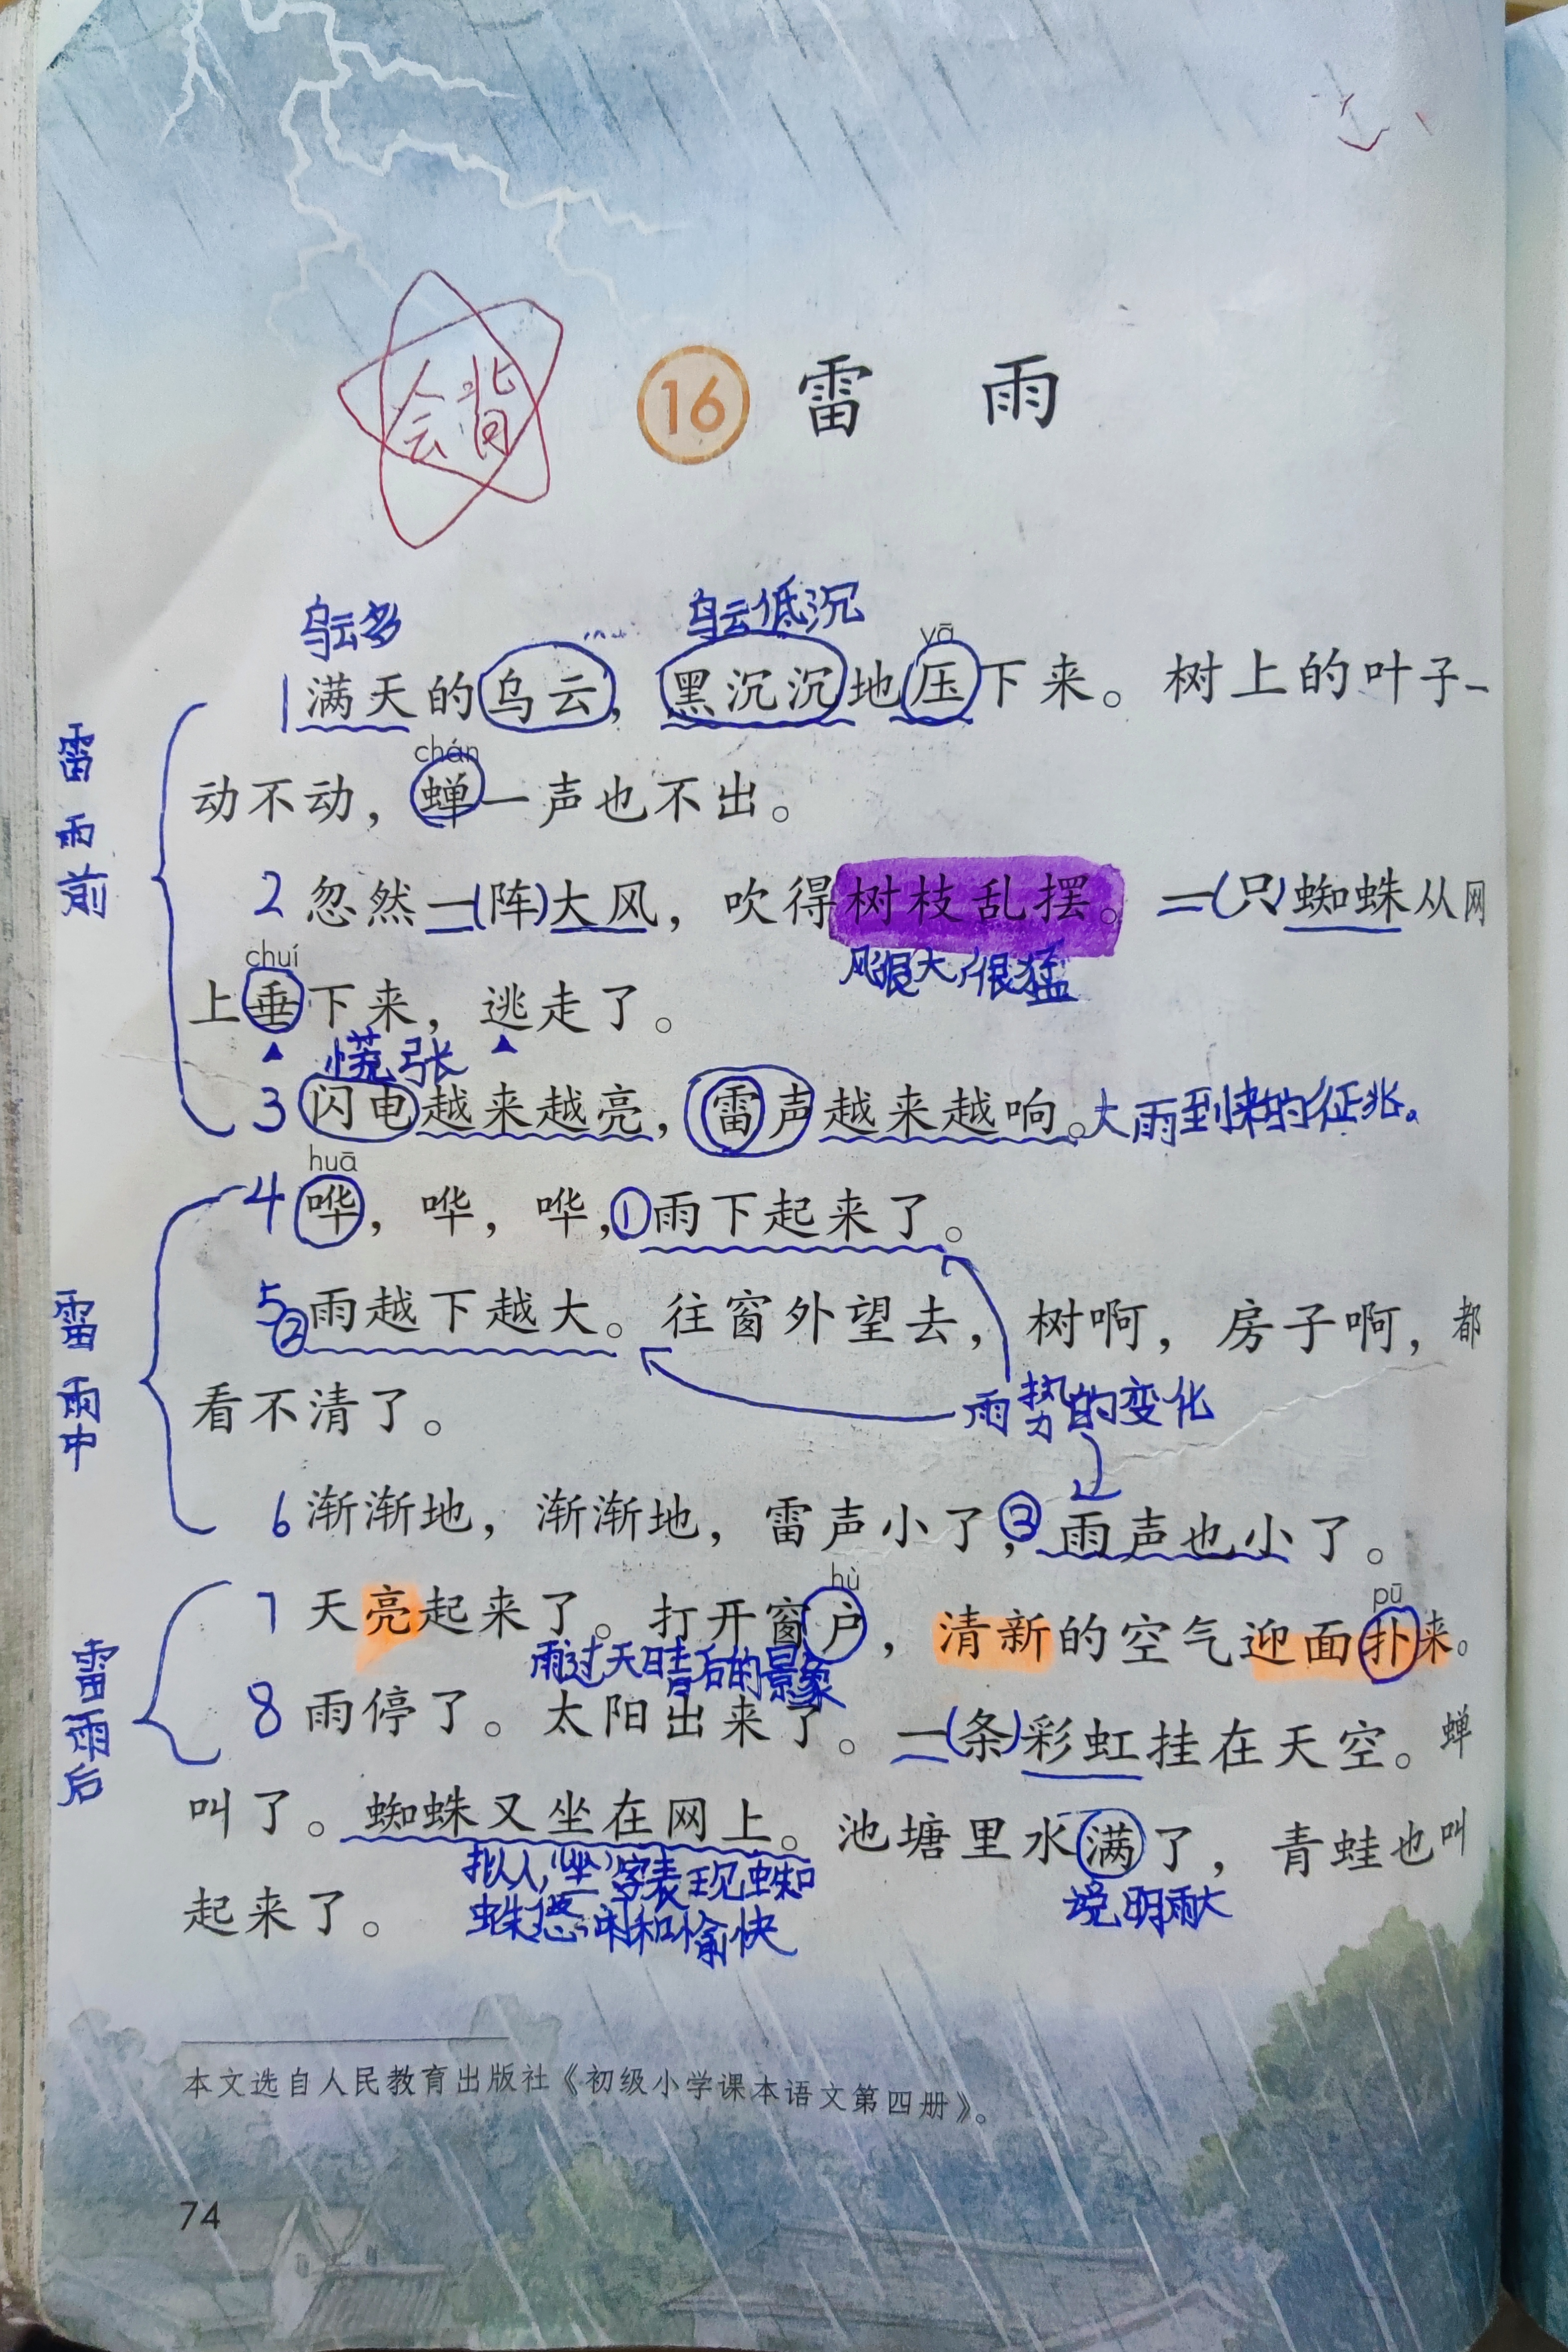 会背
16 雷 雨
乌云多 乌云低沉
yā
1 满天的乌云，黑沉沉地压下来。树上的叶子一
chán
动不动，蝉一声也不出。
2 忽然一(阵)大风，吹得树枝乱摆。一(只)蜘蛛从网
风很大，很猛
chuí
上垂下来，逃走了。
慌张
3 闪电越来越亮，雷声越来越响。大雨到来的征兆。
雷雨前
huā
4 哗，哗，哗，①雨下起来了。
5 ②雨越下越大。往窗外望去，树啊，房子啊，都
看不清了。
雨势的变化
雷雨中
6 渐渐地，渐渐地，雷声小了，③雨声也小了。
hù pū
7 天亮起来了。打开窗户，清新的空气迎面扑来。
雨过天晴后的景象
8 雨停了。太阳出来了。一(条)彩虹挂在天空。蝉
雷雨后
叫了。蜘蛛又坐在网上。池塘里水满了，青蛙也叫
拟人，“坐”字表现蜘
蛛悠闲和愉快
说明雨大
起来了。
本文选自人民教育出版社《初级小学课本语文第四册》。
74